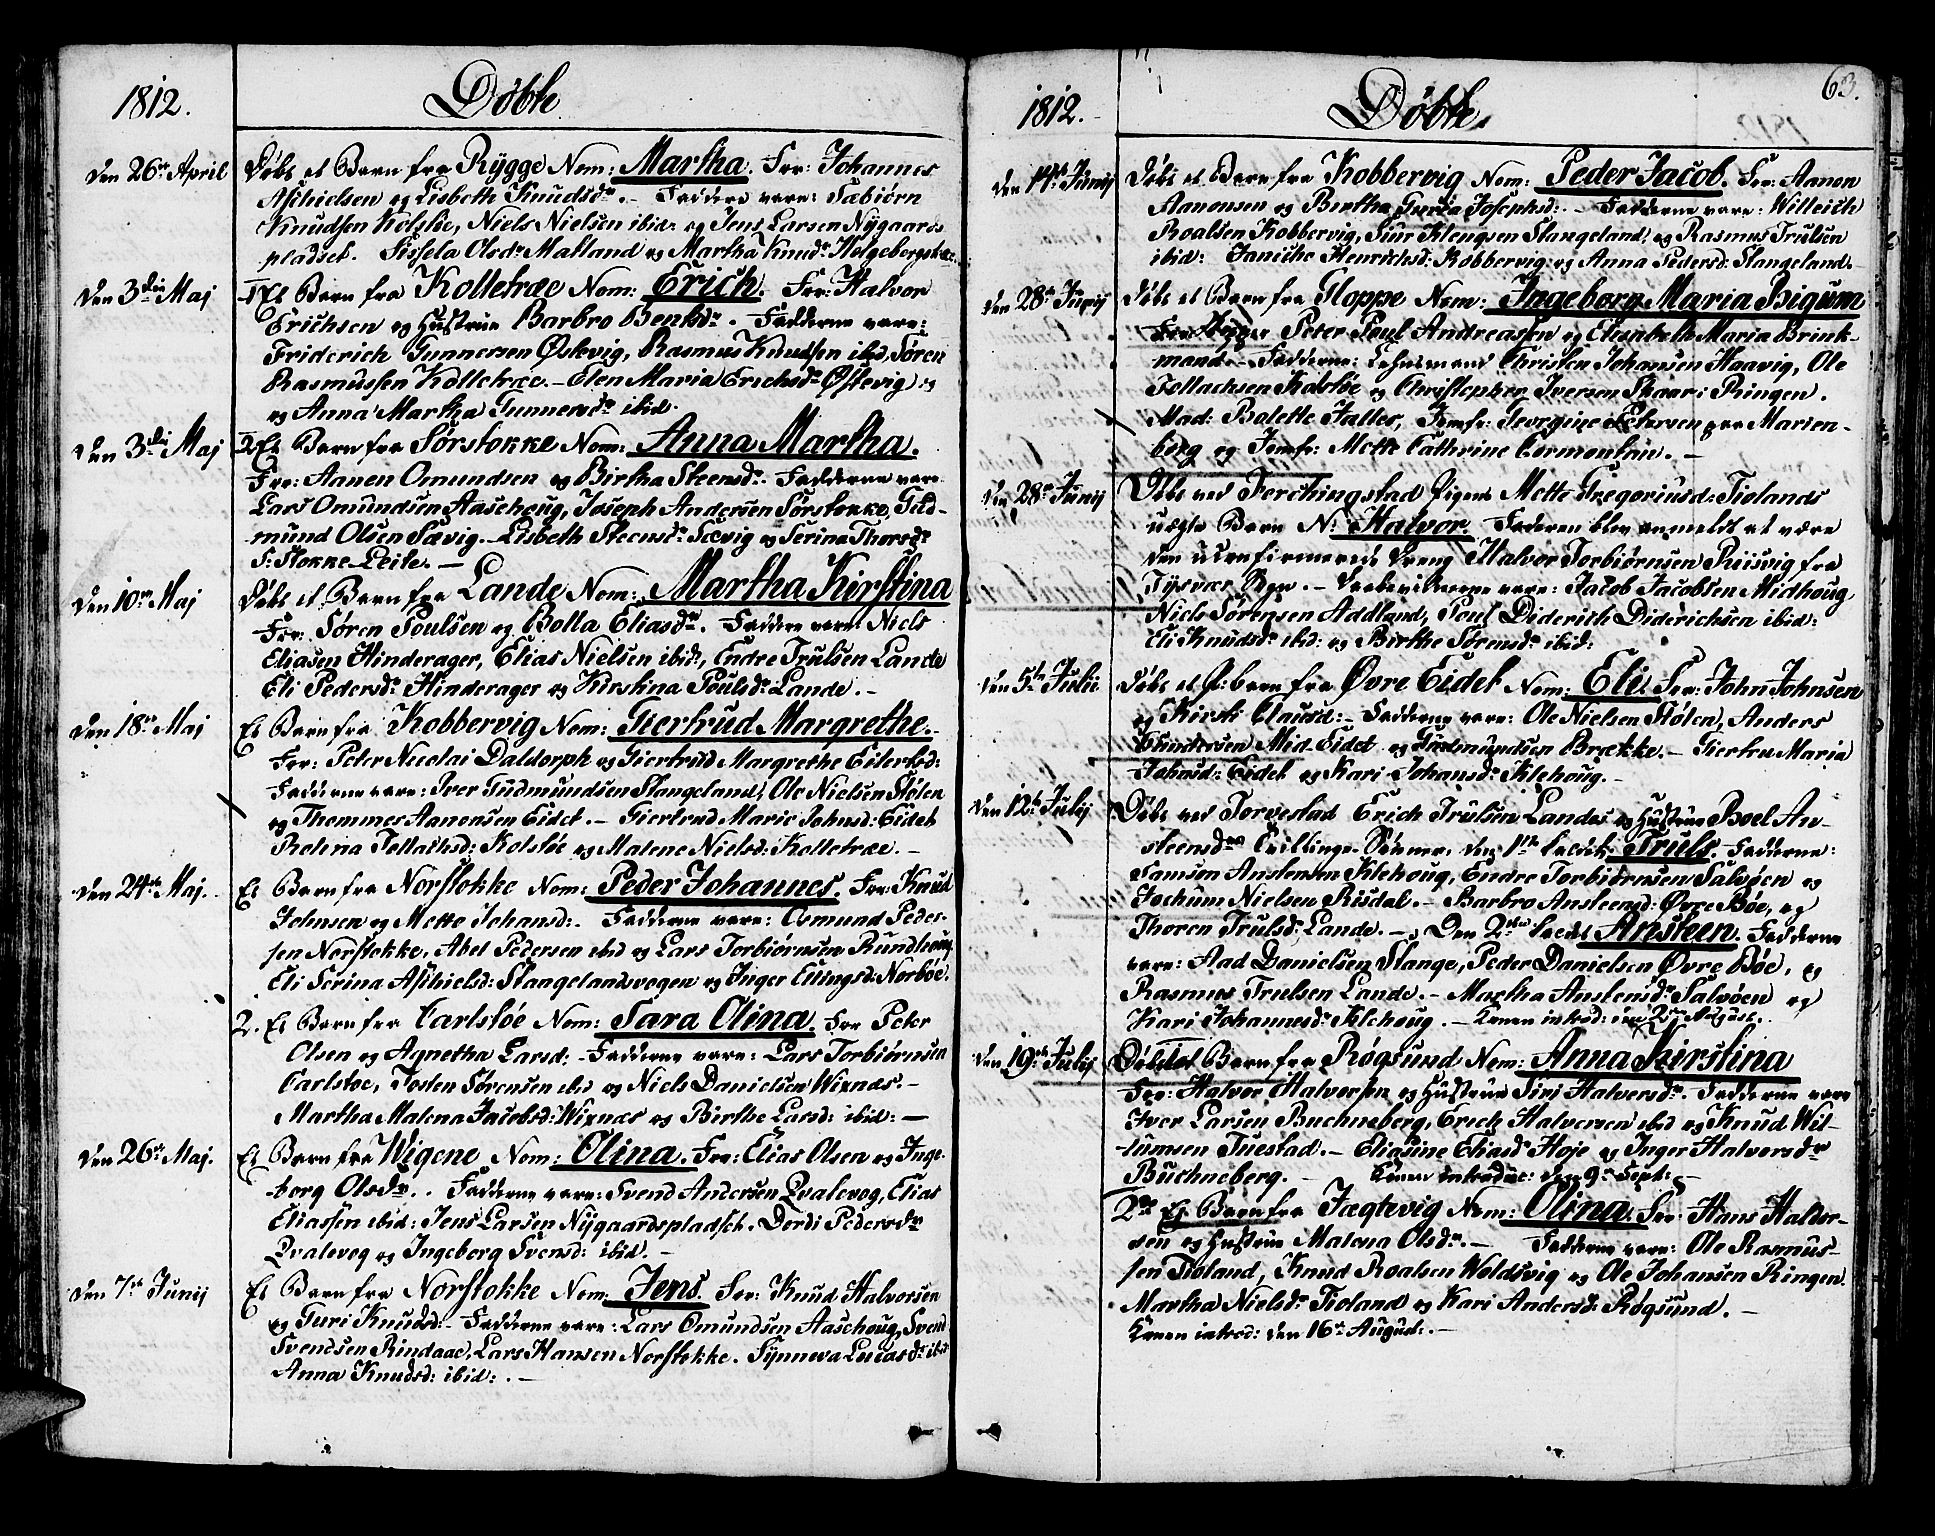 1812.
Døbte
Den 26de April
Døbt et Barn fra Rygge Nom: Martha. For: Johannes
Aschielsen og Lisbeth Knudsdr. – Faddere vare: Sæbiørn
Knudsen Kolsløe, Niels Nielsen ibid: og Jens Larsen Nygaards
pladset. Sissela Olsdr Malland og Martha Knudsdr
Den 3die Maj
1 Et Barn fra Kolletræe Nom: Erich. For: Halvor
Erichsen og Hustrue Barbro Bentsdr. Fadderne vare:
Friderich Gunnersen Østevig, Rasmus Knudsen ibid, Søren
Rasmussen Kolletræe. – Elen Maria Erichsdr Østevig og
og Anna Martha Gunnersdr ibid.
Den 3die Maj
2 Et Barn fra Sørstokke Nom: Anna Martha.
For: Aanen Omundsen og Birtha Steensdr. Fadderne vare
Lars Omundsen Aaschoug, Joseph Andersen Sørstokke, Gud-
mund Olsen Sævig. – Lisbeth Steensdr Sævig og Serina Thorsdr
S: Stokke Leite. –
Den 10de Maj
Døbt et Barn fra Lande Nom: Martha Kirstina
For: Søren Poulsen og Bolla Eliasdr. Faddere vare Niels
Eliasen Hinderager, Elias Nielsen ibid, Endre Trulsen Lande
Eli Pedersdr Hinderager og Kirstina Poulsdr Lande. –
Den 18de Maj
Et Barn fra Kobbervig Nom: Giertrud Margrethe.
For: Peter Nicolai Daldorph og Giertrud Margrethe Eilertsd:
Fadderne vare: Iver Gudmundsen Stangeland, Ole Nielsen Stølen
og Thommes Aanensen Eidet. – Giertrud Marie Johnsd: Eidet
Relina Tollachsd: Kolsløe og Malene Nielsd: Kolletræe. –
Den 24de Maj.
Et Barn fra Norstokke Nom: Peder Johannes. For: Knud
Johnsen og Mette Johansd: – Fadderne vare: Osmund Peder-
sen Norstokke, Abel Pedersen ibid og Lars Torbiørnsen Rundhoug
Eli Serina Aschielsd: Stangelandsvogen og Inger Ellingsd: Norbøe.
2. Et Barn fra Carlsløe Nom: Sara Olina. For Peter
Olsen og Agnetha Larsd: – Fadderne vare: Lars Torbiørnsen
Carlsløe, Tosten Sørensen ibid og Niels Danielsen Wixnæs. –
Martha Malena Jacobsd: Wixnæs og Birthe Larsd: ibid: –
Den 26de Maj.
Et Barn fra Wigene Nom: Olina. For: Elias Olsen og Inge-
borg Olsdr. Fadderne vare: Svend Andersen Qvalevog, Elias
Eliassen ibid: Jens Larsen Nijgaardspladset. Dordi Pedersdr
Qvalevog og Ingeborg Svensd: ibid. –
Den 7de Junij
Et Barn fra Norstokke Nom: Jens. For: Knud Halvorsen
og Guri Knudsd: – Fadderne vare: Lars Omundsen Aaschoug, Svend
Svendsen Rindaae, Lars Hansen Norstokke. Synneva Lucasdr ibid
Anna Knudsd: ibid: . –
63.
1812.
Døbte
Den 14de Junij
Døbt et Barn fra Kobbervig Nom: Peder Jacob. For: Aanon
Aanonsen og Birtha Guria Josephsd: – Fadderne vare: Willeich
Roalsen Kobbervig, Siur Klengsen Stangeland, og Rasmus Trulsen
ibid: Janiche Henrichsd: Kobbervig og Anna Pedersd: Stangeland. –
Den 28de Junij
Døbt et Barn fra Hoppe Nom: Ingeborg Maria Bigum
Peter Poul Andreasen og Elisabeth Maria Brink-
mand. – Fadderne: Lehnsmand Christen Johansen Haavig, Ole
Tollachsen Kolsløe og Christopher Iversen Skaar: Ringen.
Mad: Bolette Faller, Jomfr: Georgine Petersen paa Marien-
borg og Jomfr: Mette Cathrine Cormontan. –
Den 28de Junij
Døbt ved Ferchingstad Pigen Mette Gregoriusd: Tiolands
uægte Barn N: Halvor. Faderen blev anmeldt at være
den uconfirmerede Dreng Halvor Torbiørnsen Riisvig fra
Tysvær Sogn. – Daabsvidnerne vare: Jacob Jacobsen Midhoug
Niels Sørensen Addland, Poul Diderich Diderichsen ibid:
Eli Knudsdr ibid: og Birthe Sørensdr ibid:
Den 5te Julii
Døbt et Barn fra Øvre Eidet Nom: Eli. For: John Johnsen
og Kirsti Clausd: – Fadderne vare: Ole Nielsen Stølen, Anders
Gundersen Mid-Eidet og Gudmundsen Brække. – Giertru Maria
Johnsd: Eidet og Kari Johansdr Klehoug. –
Den 12te Julij
Døbt ved Torvestad Erich Trulsen Landes og Hustrue Boel An-
steensdrs Tvillinge-Sønner, den 1ste kaldet Truls. Fadderne:
Samson Anstensen Klehoug, Endre Torbiørnsen Salvøen og
Jochum Nielsen Risdal. – Barbro Ansteensd: Øvre Bøe, og
Thoren Trulsd: Lande. – Den 2den kaldet Ansteen. Fadderne
vare: Aad Danielsen Stange, Peder Danielsen Øvre Bøe, og
Rasmus Trulsen Lande. – Martha Anstensdr Salvøen og
Kari Johannesdr Klehoug. – Konen introd: den 2den August.
Den 19de Julij
Døbt et Barn fra Røgsund Nom: Anna Kirstina
For: Halvor Halvorsen og Hustrue Siri Halvorsdr. Fadderne vare
Iver Larsen Buchneberg, Erich Halvorsen ibid og Knud Wil-
lumsen Tuestad. – Eliasine Eliasdr Hoje og Inger Halversdr
Buchneberg. – Konen introduc: den 9de Sept: –
2de Et Barn fra Jægtevig Nom: Olina. For Hans Haldor-
sen og Hustrue Malena Olsdr. – Fadderne vare: Ole Rasmus-
sen Tioland, Knud Roalsen Woldsvig og Ole Johansen Ringen
Martha Nielsdr Tioland og Kari Andersd: Røgsund. –
Konen introd: den 16de August. –